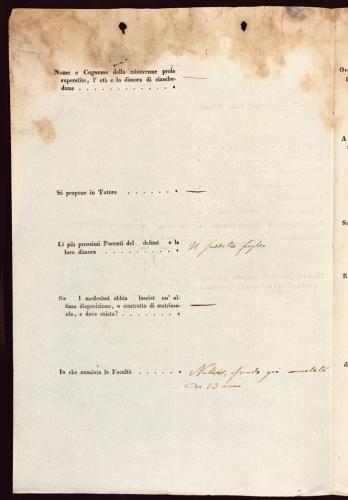 Nome e Cognome della minorenne prole
superstite, l'età e la dimora di ciasche-
duna . . . . . . . . . . . . . . —
Si propone in Tutore . . . . . . —
Li più prossimi Parenti del defont e la
loro dimora . . . . . . . . . . Il predetto figlio
Se l medesim abbia lasciat un' ul-
tima disposizione, o contratto di matrimo-
nio, e dove esista? . . . . . . . . —
In che consista la Facoltà . . . . . . Nulla, essendo già ammalato
da 23 anni